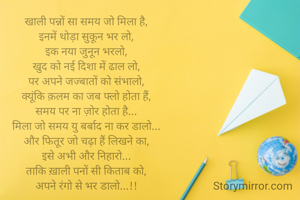 खाली पन्नों सा समय जो मिला है,
इनमें थोड़ा सुकून भर लो,
इक नया जुनून भरलो,
खुद को नई दिशा में ढाल लो,
पर अपने जज्बातों को संभालो,
क्यूंकि क़लम का जब फ्लो होता हैं,
समय पर ना ज़ोर होता है...
मिला जो समय यु बर्बाद ना कर डालो...
और फितूर जो चढ़ा हैं लिखने का,
इसे अभी और निहारो...
ताकि ख़ाली पनों सी किताब को,
अपने रंगो से भर डालो...!!
Storymirror.com